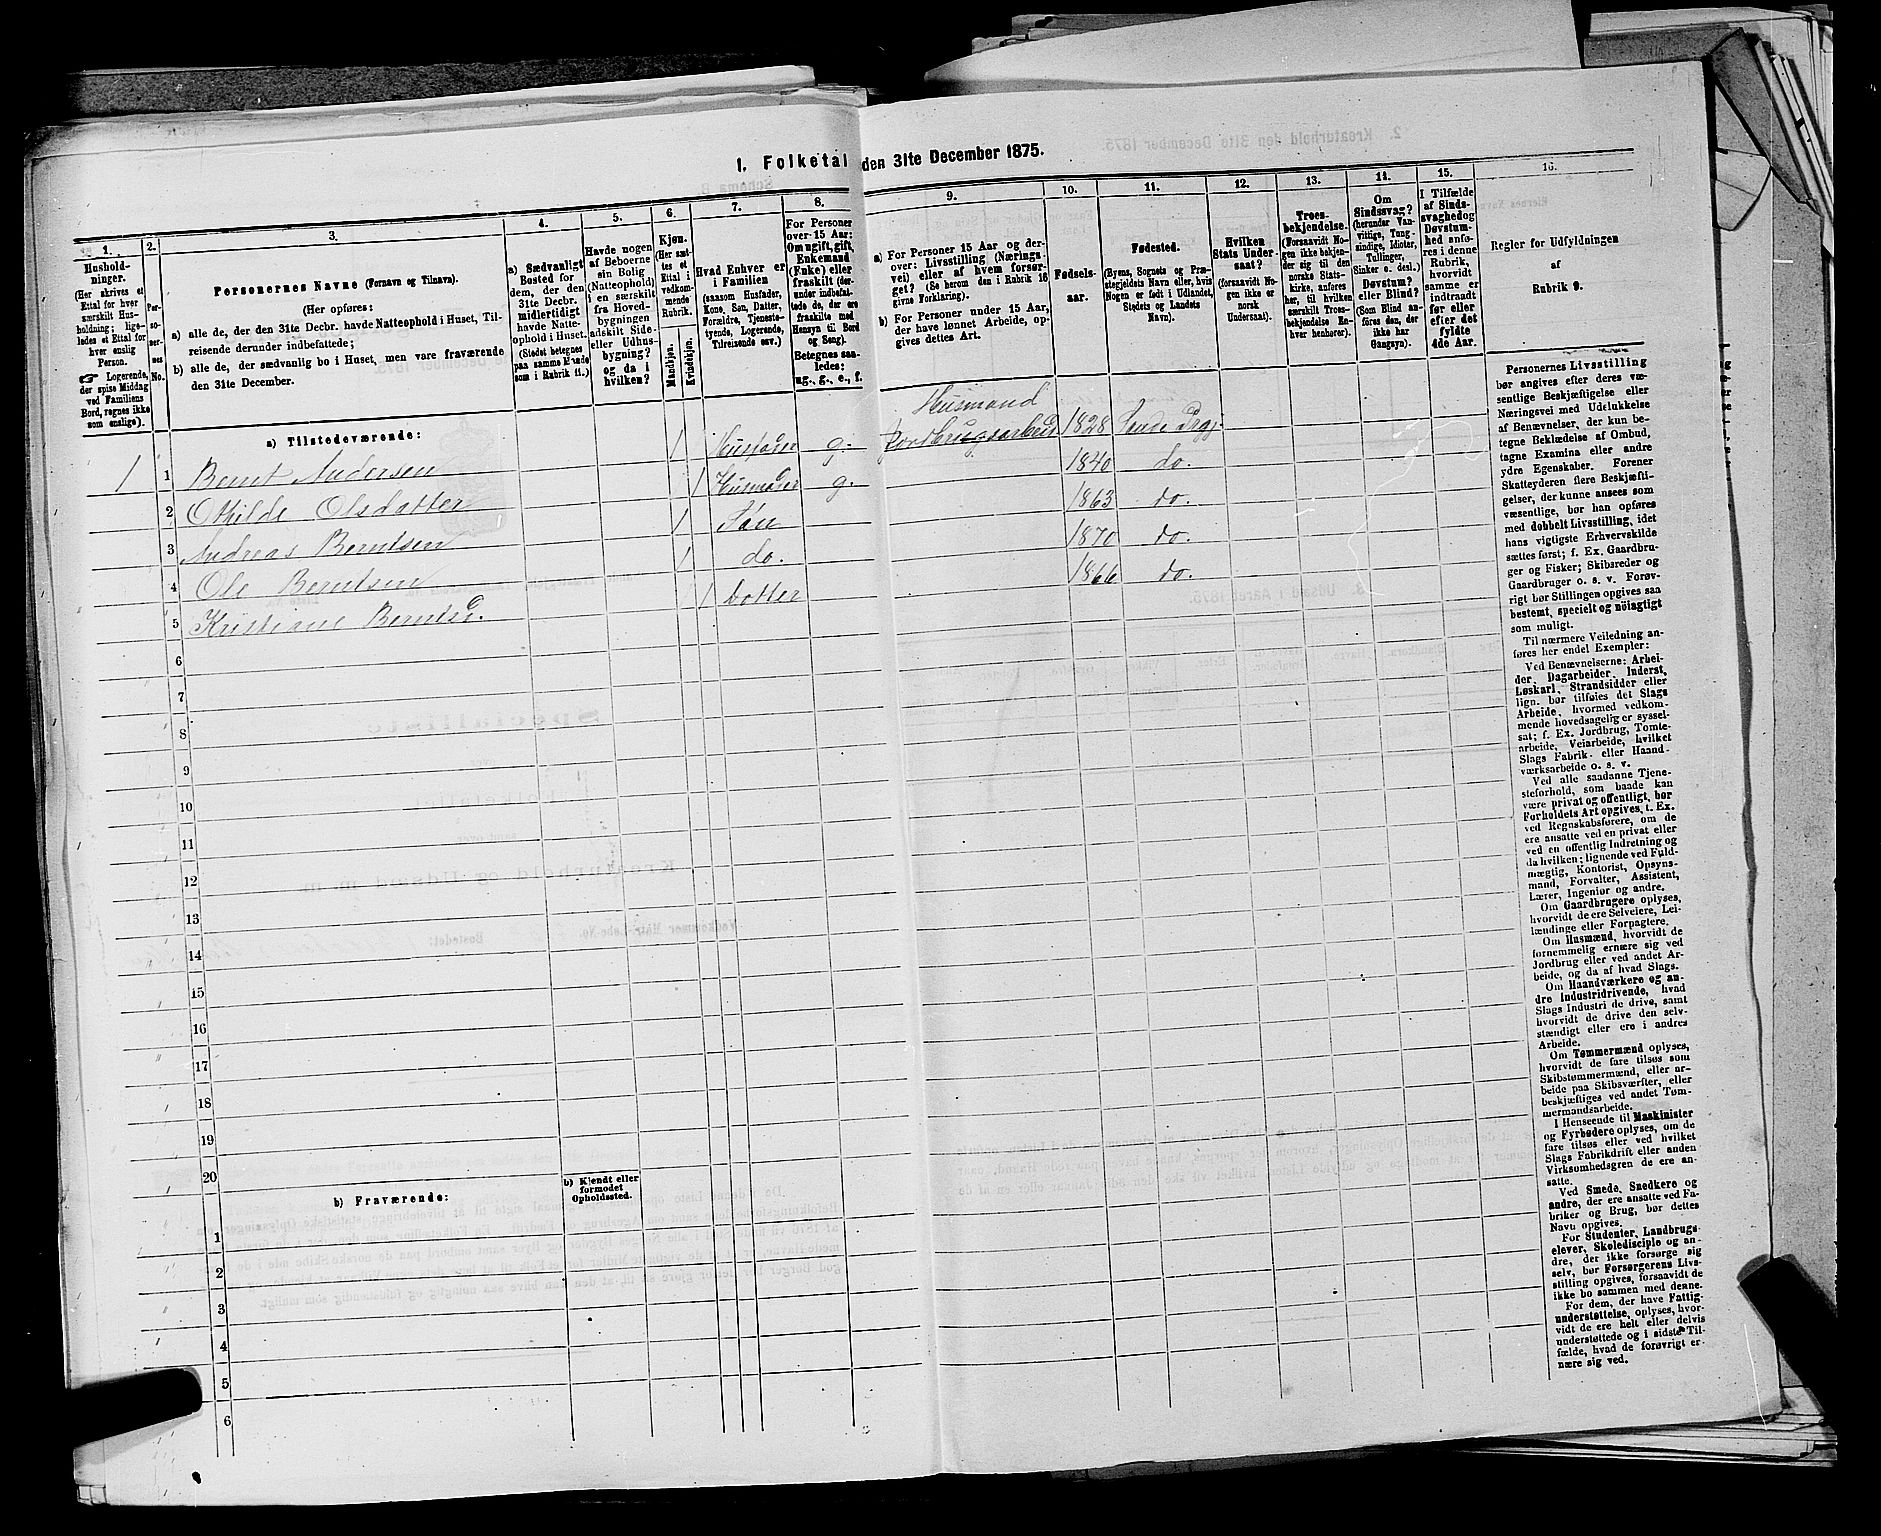 1. Folketal den 31te December 1875.
1.
2.
3.
4.
5.
6.
7.
8.
9.
10.
11.
12.
13.
14.
15.
16.
Hushold-
ninger.
(Her skrives et
Ettal for hver
særskilt Hus-
holdning; lige-
ledes et Ettal for
hver enslig
Person.
☞ Logerende,
der spise Middag
ved Familiens
Bord, regnes ikke
som enslige).
Per-
so-
ner-
nes
No.
Personernes Navne (Fornavn og Tilnavn).
(Her opføres:
a) alle de, der den 31te Decbr. havde Natteophold i Huset, Til-
reisende derunder indbefattede;
b) alle de, der sædvanlig bo i Huset, men vare fraværende
den 31te December.
a) Sædvanligt
Bosted for
dem, der den
31te Decbr.
midlertidigt
havde Natte-
ophold i Huset.
(Stedet betegnes
paa samme Maade
som i Rubrik 11.)
Havde nogen
af Beboerne
sin Bolig
(Natteophold)
i en særskilt
fra Hoved-
bygningen
adskilt Side-
eller Udhus-
bygning?
og da i
hvilken?
Kjøn.
(Her sæt-
tes et
Ettal i
vedkom-
mende
Rubrik.
Mandkjøn.
Kvindekjøn.
Hvad Enhver er
i Familien
(saasom Husfader,
Kone, Søn, Datter,
Forældre, Tjeneste-
tyende, Logerende,
Tilreisende osv.)
For Personer
over 15 Aar:
Om ugift, gift,
Enkemand
(Enke) eller
fraskilt (der-
under indbefat-
tede de, der ere
fraskilte med
Hensyn til Bord
og Seng).
Betegnes saa-
ledes:
ug., g., e., f.
a) For Personer 15 Aar og der-
over: Livsstilling (Nærings-
vei) eller af hvem forsør-
get? (Se herom den i Rubrik 16
givne Forklaring).
b) For Personer under 15 Aar,
der have lønnet Arbeide, op-
gives dettes Art.
Fødsels-
aar.
Fødested.
(Byens, Sognets og Præ-
stegjeldets Navn eller, hvis
Nogen er født i Udlandet,
Stedets og Landets
Navn).
Hvilken
Stats Under-
saat?
(forsaavidt No-
gen ikke er
norsk
Undersaat).
Troes-
bekjendelse.
(Forsaavidt No-
gen ikke bekjen-
der sig til den
norske Stats-
kirke, anføres
her, til hvilken
særskilt Troes-
bekjendelse En-
hver henhører).
Om
Sindssvag?
(herunder Van-
vittige, Tung-
sindige, Idioter,
Tullinger,
Sinker o. desl.)
Døvstum?
eller Blind?
(Som Blind an-
føres den, der
ikke har
Gangsyn).
I Tilfælde
af Sinds-
svaghedog
Døvstum-
hed anfø-
res i denne
Rubrik,
hvorvidt
samme er
indtraadt
før eller
efter det
fyldte
4de Aar.
Regler for Udfyldningen
af
Rubrik 9.
a) Tilstedeværende:
1 1 Bernt Andersen 1 Husfader g. Husmand Jordbrugsarbeid 1828
2 Othilde Olsdatter 1 Husmoder g. 1840 do.
3 Andreas Berntsen 1 Søn 1863 do.
4 Ole Berntsen 1 do. 1870 do.
5 Kristiane Berntsd. 1 Dotter 1866 do.
6
7
8
9
10
11
12
13
14
15
16
17
18
19
20
b) Fraværende:
b) Kjendt eller
formodet
Opholdssted.
1
2
3
4
5
6
Personernes Livsstilling
bør angives efter deres væ-
sentlige Beskjæftigelse eller
Næringsvei med Udelukkelse
af Benævnelser, der kun be-
tegne Beklædelse af Ombud,
tagne Examina eller andre
ydre Egenskaber. Forener
Skatteyderen flere Beskjæfti-
gelser, der kunne ansees som
væsentlige, bør han opføres
med dobbelt Livsstilling, idet
hans vigtigste Erhvervskilde
sættes først; f. Ex. Gaardbru-
ger og Fisker; Skibsreder og
Gaardbruger o. s. v. Forøv-
rigt bør Stillingen opgives saa
bestemt, specielt og nöiagtigt
som muligt.
Til nærmere Veiledning an-
føres her endel Exempler:
Ved Benævnelserne: Arbei-
der, Dagarbeider, Inderst,
Løskarl, Strandsidder eller
lign. bør tilføies det Slags
Arbeide, hvormed vedkom-
mende hovedsagelig er syssel-
sat; f. Ex. Jordbrug, Tomte-
arbeide, Veiarbeide, hvilket
Slags Fabrik- eller Haand-
værksarbeide o. s. v.
Ved alle saadanne Tjene-
steforhold, som baade kan
være privat og offentligt, bør
Forholdets Art opgives, t. Ex.
ved Regnskabsførere, om de
ere ansatte ved en privat eller
ved en offentlig Indretning og
da hvilken; lignende ved Fuld-
mægtig, Kontorist, Opsyns-
mand, Forvalter, Assistent,
Lærer, Ingeniør og andre.
Om Gaardbrugere oplyses,
hvorvidt de ere Selveiere, Lei-
lændinge eller Forpagtere.
Om Husmænd, hvorvidt de
fornemmelig ernære sig ved
Jordbrug eller ved andet Ar-
beide, og da af hvad Slags.
Om Haandværkere og an-
dre Industridrivende, hvad
Slags Industri de drive, samt
hvorvidt de drive den selv-
stændigt eller ere i andres
Arbeide.
Om Tømmermænd oplyses,
hvorvidt de fare tilsøs som
Skibstømmermænd, eller ar-
beide paa Skibsværfter, eller
beskjæftiges ved andet Tøm-
mermandsarbeide.
I Henseende til Maskinister
og Fyrbødere oplyses, om de
fare tilsøs eller ved hvilket
Slags Fabrikdrift eller anden
Virksomhedsgren de ere an-
satte.
Ved Smede, Snedkere og
andre, der ere ansatte ved Fa-
briker og Brug, bør dettes
Navn opgives.
For Studenter, Landbrugs-
elever, Skoledisciple og an-
dre, der ikke forsørge sig
selv, bør Forsørgerens Livs-
stilling opgives, forsaavidt de
ikke bo sammen med denne.
For dem, der have Fattig-
understøttelse, oplyses, hvor-
vidt de ere helt eller delvis
understøttede og i sidste Til-
fælde, hvad de forøvrigt er-
nære sig ved.